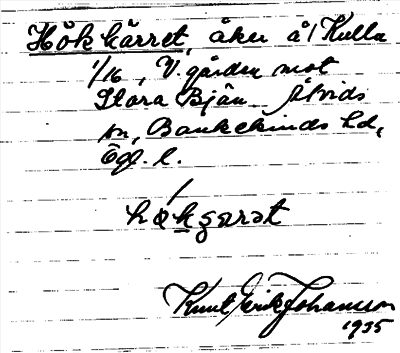 Hökkärret, åker å/Kulla
1/16, V. gården mot
Stora Bjän Åtvids
sn, Bankekinds hd,
Ögl. l.
Knut Erik Johansson
1935